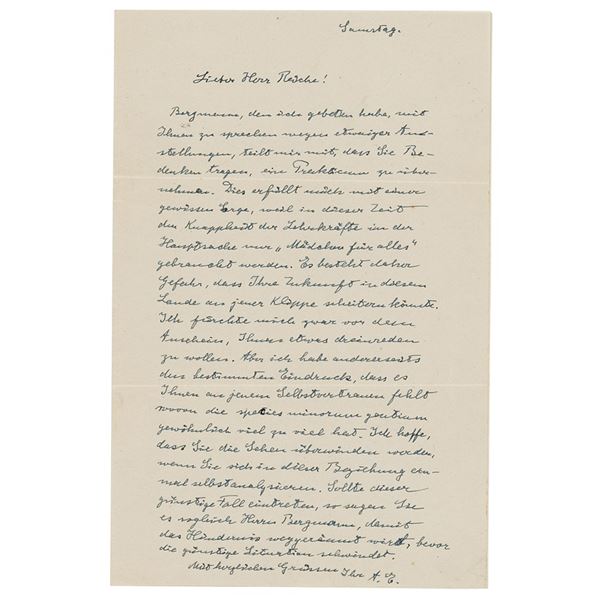 Samstag.
Lieber Herr Reiche!
Bergmann, den ich gebeten habe, mit
Ihnen zu sprechen wegen etwaiger An-
stellungen, teilt mir mit, dass Sie Be-
denken tragen, ein Praktikum zu über-
nehmen. Dies erfüllt mich mit einer
gewissen Sorge, weil in dieser Zeit
der Knappheit der Lehrkräfte in der
Hauptsache nur „Mädchen für alles“
gebraucht werden. Es besteht daher
Gefahr, dass Ihre Zukunft in diesem
Lande an jener Klippe scheitern könnte.
Ich fürchte mich zwar vor dem
Anschein, Ihnen etwas dreinreden
zu wollen. Aber ich habe anderseits
den bestimmten Eindruck, dass es
Ihnen an jenem Selbstvertrauen fehlt
wovon die species minorum gentium
gewöhnlich viel zu viel hat. Ich hoffe,
dass Sie die Scheu überwinden werden,
wenn Sie sich in dieser Beziehung ein-
mal selbstanalysieren. Sollte dieser
günstige Fall eintreten, so sagen Sie
es sogleich Herrn Bergmann, damit
das Hindernis weggeräumt wird, bevor
die günstige Situation schwindet.
Mit herzlichen Grüssen Ihr A. E.